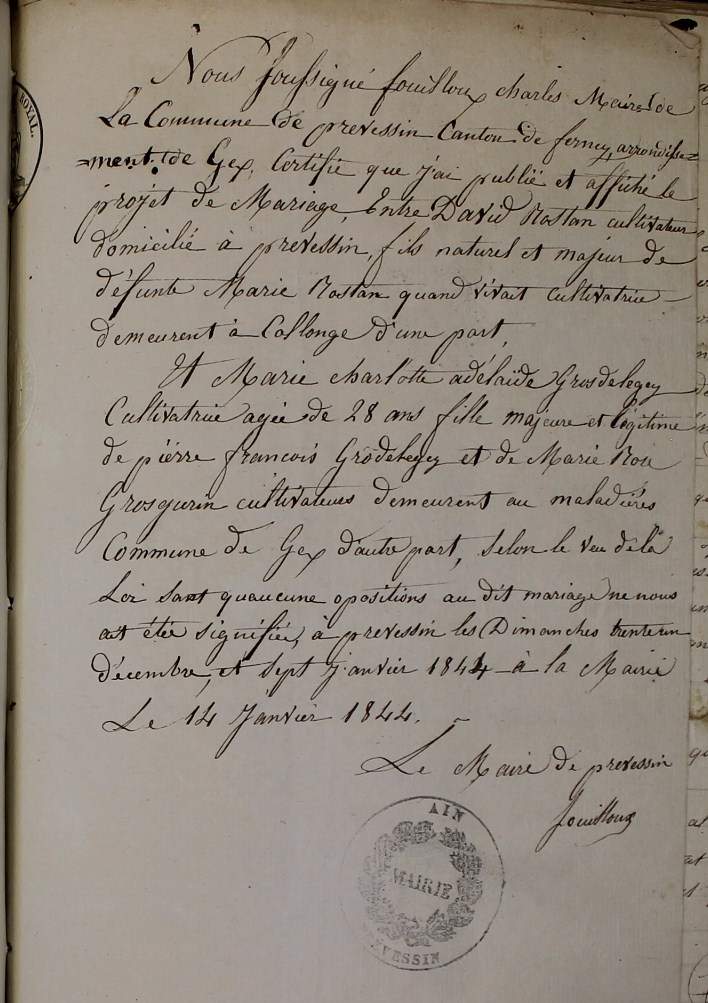 ROYAL.
Nous soussigné fouilloux charles Maire de
La Commune de prevessin Canton de ferney, arrondisse=
=ment. de Gex, Certifie que j'ai publié et affiché le
projet de Mariage, Entre David Rostan cultivateur
domicilié à prevessin, fils naturel et majeur de
défunte Marie Rostan quand vivait cultivatrice
demeurent à Collonge d'une part,
Et Marie charlotte adélaïde Grosdelegey
Cultivatrice agée de 28 ans fille majeure et légitime
de pierre francois Grodelegey et de Marie Rose
Grosgurin cultivateurs demeurent au maladières
Commune de Gex d'autre part, selon le veu de la
Loi sant quaucune opositions au dit mariage ne nous
ait étée signifiée, à prevessin les Dimanches trente un
décembre, et sept janvier 1844 à la Mairie
Le 14 Janvier 1844.
Le Maire de prevessin
fouilloux
AIN
MAIRIE
PREVESSIN